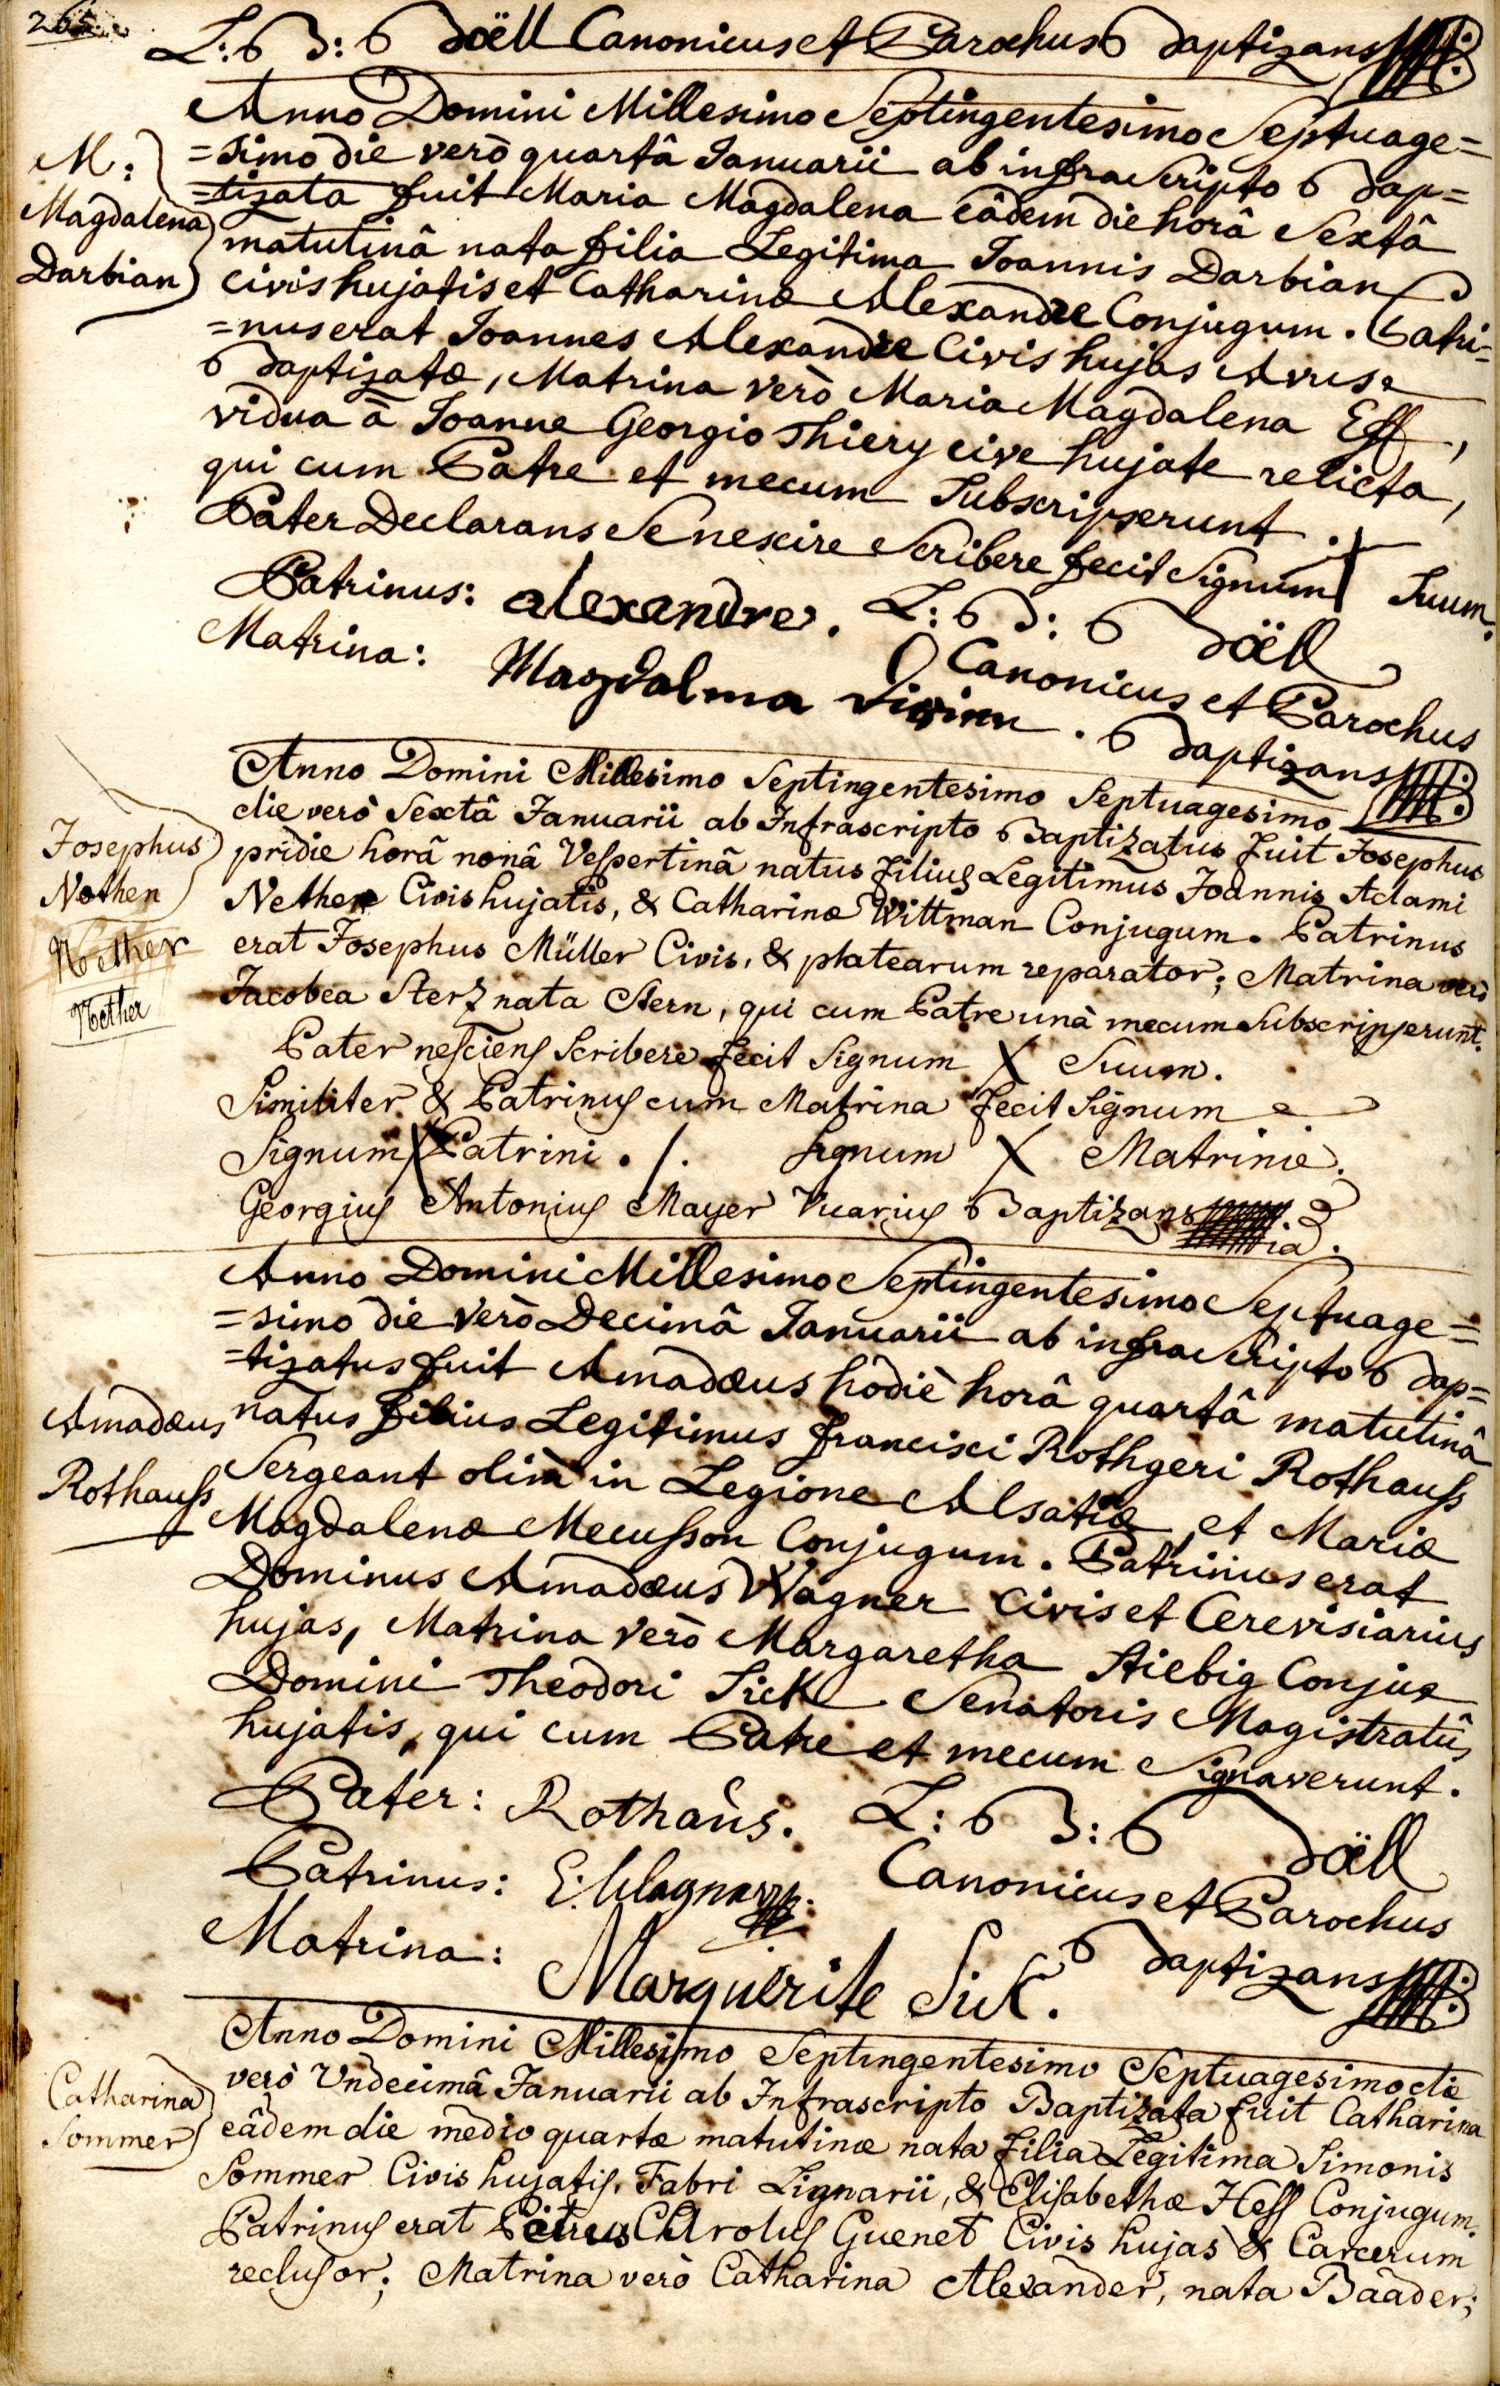 265.
L: B: Böell Canonicus et Parochus Baptizans
Anno Domini Millesimo Septingentesimo Septuage=
M:
=simo die verò quartâ Januarii ab infra Scripto Bap=
=tizata fuit Maria Magdalena eâdem die horâ Sextâ
Magdalena
matutinâ nata filia Legitima Joannis Darbian
Darbian
civis hujatis et Catharinæ Alexandre Conjugum. Patri=
=nus erat Joannes Alexandre Civis hujas Avus
Baptizatæ, Matrina verò Maria Magdalena Eff,
vidua à Joanne Georgio Thiery cive hujate relicta,
qui cum Patre et mecum Subscripserunt.
Pater Declarans Se nescire Scribere fecit Signum † Suum.
Patrinus: alexandre. L: B: Böell
Matrina: Magdalena Canonicus et Parochus
Baptizans
Anno Domini Millesimo Septingentesimo Septuagesimo
die verò Sextâ Januarii ab Infrascripto Baptizatus fuit Josephus
Josephus
pridie horâ nonâ Vespertinâ natus filius Legitimus Joannis Adami
Nethen
Nether Civis hujatis, & Catharinæ Wittman Conjugum. Patrinus
Nether
erat Josephus Müller Civis, & platearum reparator; Matrina verò
Nether
Jacobea Sterz nata Stern, qui cum Patre unà mecum Subscripserunt.
Pater nesciens Scribere fecit Signum X Suum.
Similiter & Patrinus cum Matrina fecit Signum
Signum X Patrini ./. Signum X Matrinæ.
Georgius Antonius Mayer Vicarius Baptizans
Anno Domini Millesimo Septingentesimo Septuage=
=simo die verò Decimâ Januarii ab infra Scripto Bap=
=tizatus fuit Amadæus hodiè horâ quartâ matutinâ
Amadæus
natus filius Legitimus Francisci Rothgeri Rothauss
Rothauss
Sergeant olim in Legione Alsatiæ, et Mariæ
Magdalenæ Mecusson Conjugum. Patrinus erat
Dominus Amadæus Wagner Civis et Cerevisiarius
hujas, Matrina verò Margaretha Stiebig Conjux
Domini Theodori Sick Senatoris Magistratûs
hujatis, qui cum Patre et mecum Signaverunt.
Pater: Rothaus. L: B: Böell
Patrinus: E. Wagner Canonicus et Parochus
Matrina: Marguerite Sick. Baptizans
Anno Domini Millesimo Septingentesimo Septuagesimo die
Catharina
verò Undecimâ Januarii ab Infrascripto Baptizata fuit Catharina
Sommer
eâdem die medio quartæ matutinæ nata filia Legitima Simonis
Sommer Civis hujatis, Fabri Lignarii, & Elisabethæ Hess Conjugum.
Patrinus erat Petrus Carolus Guenet Civis hujas & Carcerum
reclusor; Matrina verò Catharina Alexander, nata Baader;